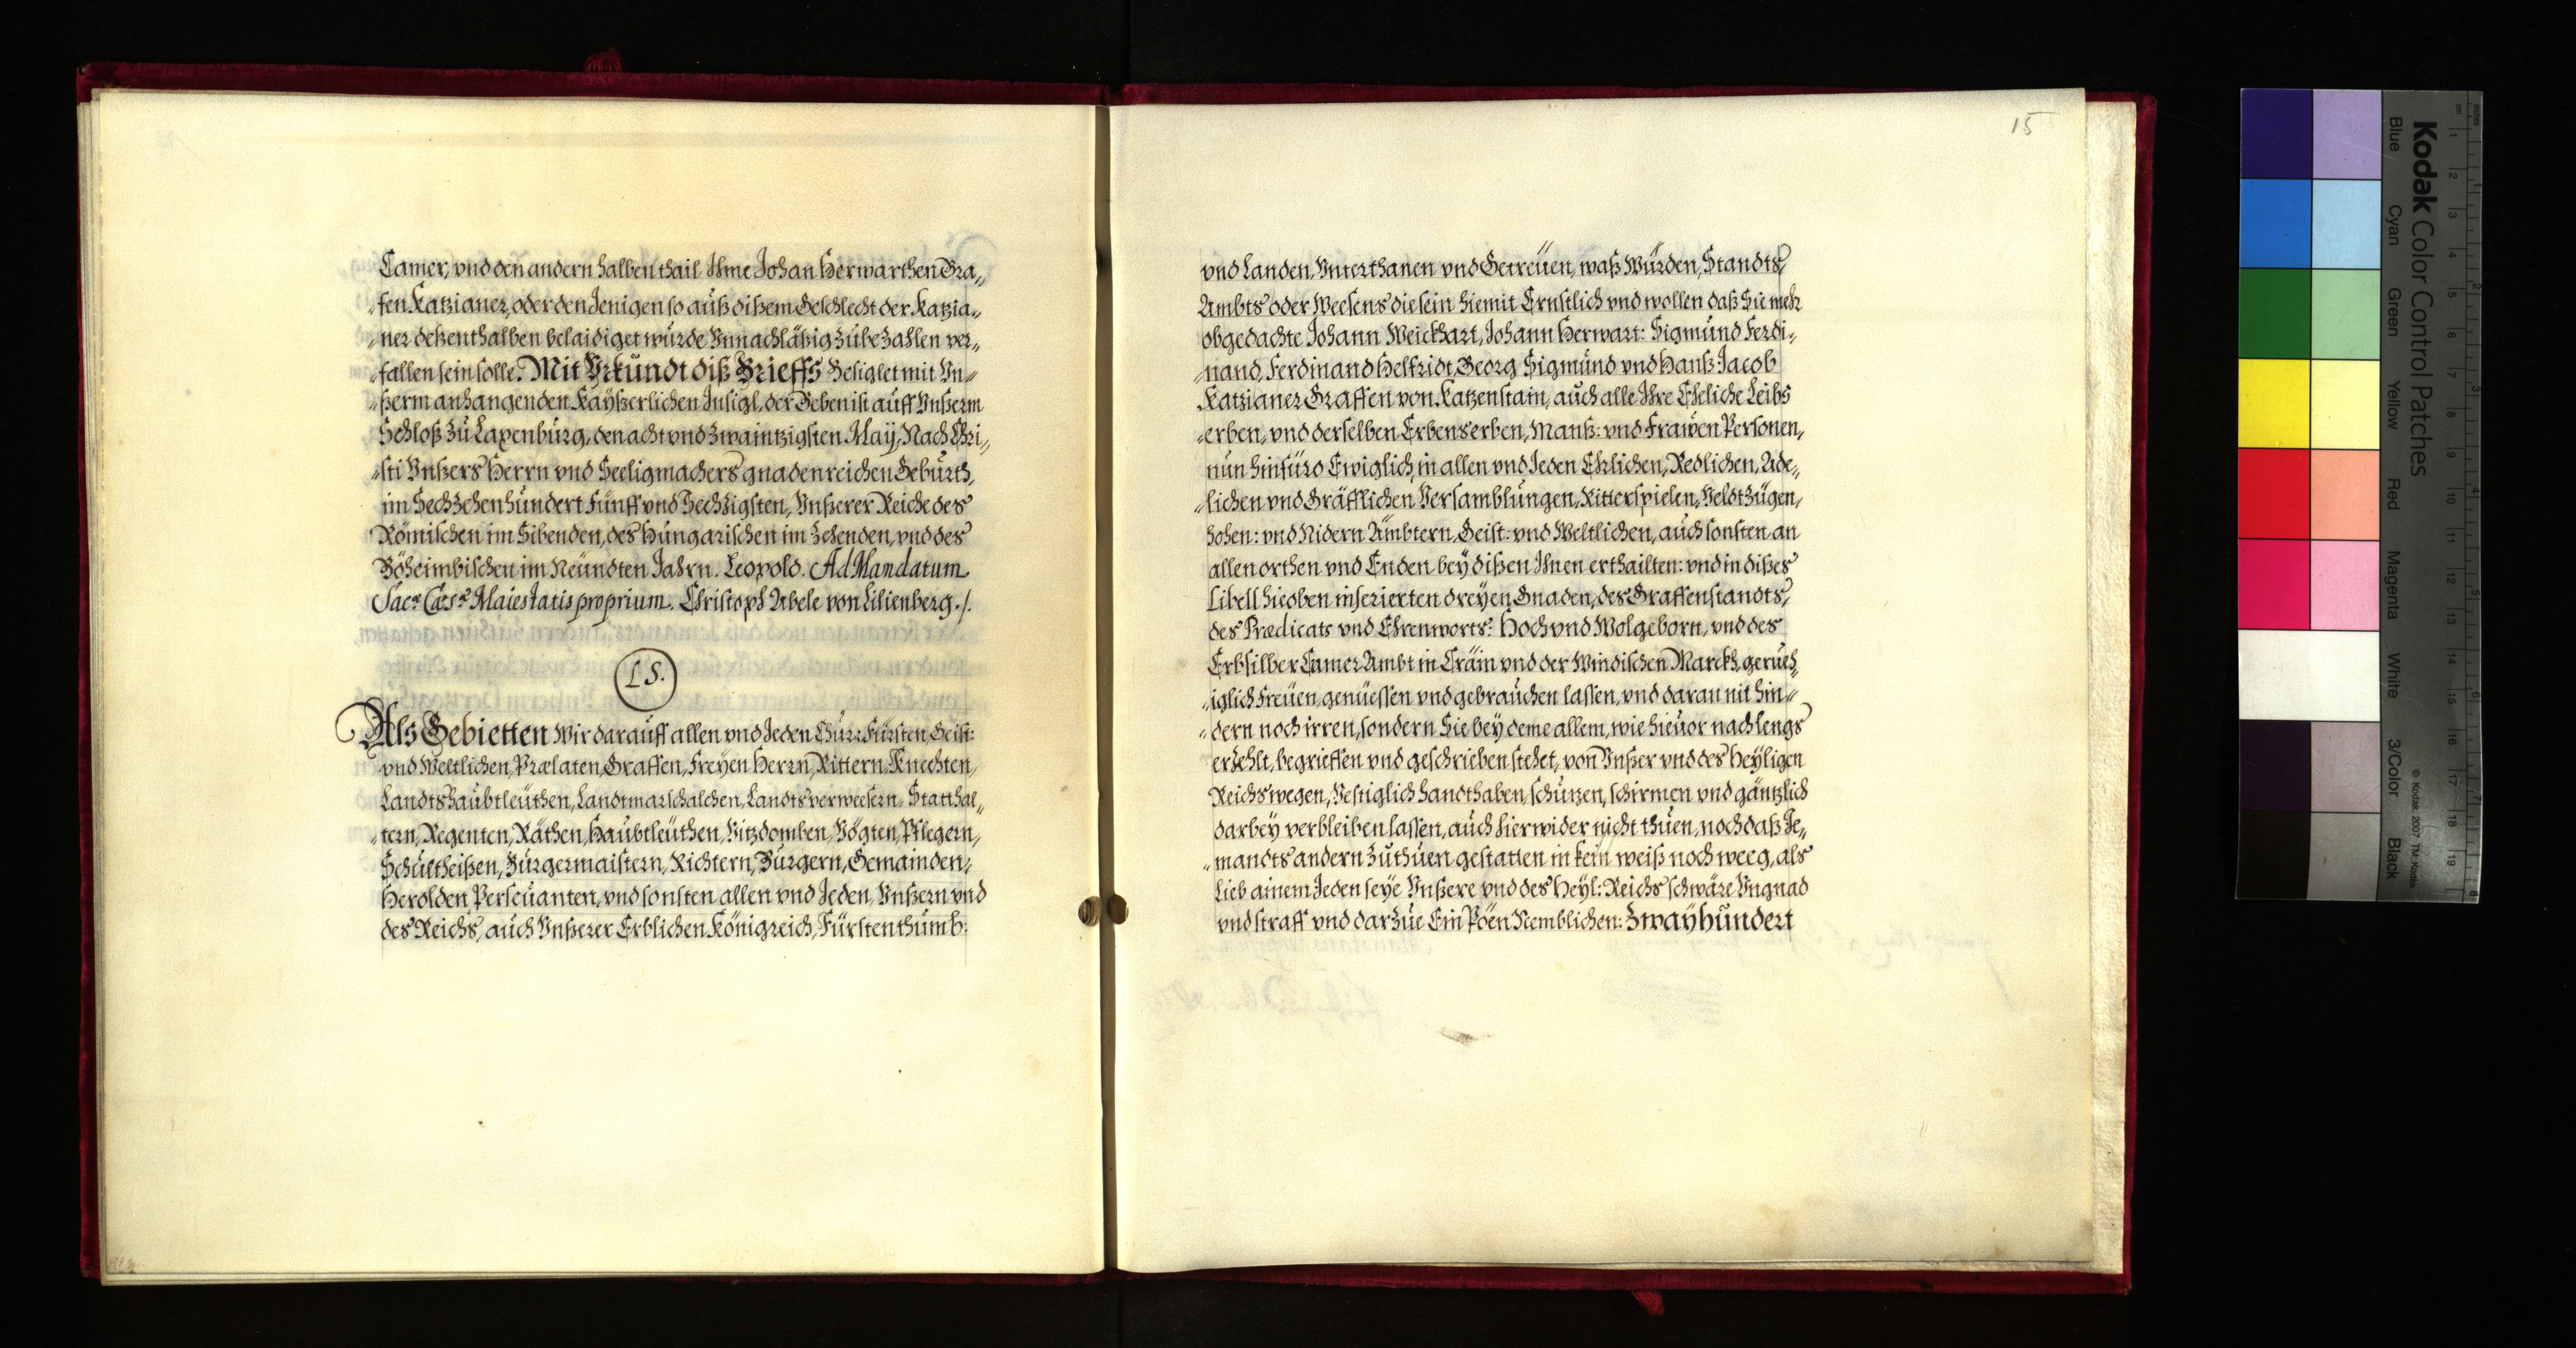 Camer, vnd den andern halben thail Ihme Johan Herwarthen Gra,,
,,fen Katzianer, oder den Jenigen so auß dißem Geschlecht der Katzia,,
,,ner deßenthalben belaidiget würde Vnnachläßig zubezahlen ver,,
,,fallen sein solle. Mit Vrkundt diß Brieffs Besiglet mit Vn,,
,,ßerm anhangenden Kayßerlichen Insigl, der Geben ist auff Vnßerm
Schloß zu Laxenburg, den acht vnd zwaintzigsten May, Nach Chri,,
,,sti Vnßers Herrn vnd Seeligmachers gnadenreichen Geburth,
im Sechzehenhundert Fünff vnd Sechzigsten, Vnßerer Reiche des
Römischen im Sibenden, des Hungarischen im Zehenden, vnd des
Böheimbischen im Neündten Jahrn. Leopold. Ad Mandatum
Sacæ Cæsæ Maiestatis proprium. Christoph Abele von Lilienberg ./.
L S.
Als Gebietten Wir darauff allen vnd Jeden Chur: Fürsten, Geist:
vnd Weltlichen, Prælaten, Graffen, Freyen Herrn, Rittern, Knechten,
Landtshaubtleuthen, Landtmarschalchen, Landtsverweesern, Statthal,,
,,tern, Regenten, Räthen, Haubtleuthen, Vitzdomben, Vögten, Pflegern,
Schultheißen, Burgermaistern, Richtern, Burgern, Gemainden,
Herolden, Perseuanten, vnd sonsten allen vnd Jeden, Vnßern vnd
des Reichs, auch Vnßerer Erblichen Königreich, Fürstenthumb:
15
vnd Landen, Vnterthanen vnd Getreüen, waß Würden, Standts,
Ambts oder Weesens die sein hiemit Ernstlich vnd wollen daß Sie mehr
obgedachte Johann Weickhart, Johann Herwart: Sigmund Ferdi,,
,,nand, Ferdinand Helfridt, Georg Sigmund vnd Hanß Jacob
Katzianer Graffen von Katzenstain, auch alle Ihre Eheliche Leibs
,,erben, vnd derselben Erbenserben, Manß: vnd Frawen Personen,
nun hinfüro Ewiglich, in allen vnd Jeden Ehrlichen, Redlichen, Ade,,
,,lichen vnd Gräfflichen Versamblungen, Ritterspielen, Veldtzügen,
hohen: vnd Nidern Ämbtern, Geist: vnd Weltlichen, auch sonsten an
allen orthen vnd Enden bey dißen Ihnen erthailten: vnd in dißes
Libell hieoben inserierten dreyen Gnaden, des Graffenstandts,
des Prædicats vnd Ehrenworts: Hoch vnd Wolgeborn, vnd des
Erbsilber Camer Ambt in Crain vnd der Windischen Marckh, gerueh,,
,,iglich Freüen, genüessen vnd gebrauchen lassen, vnd daran nit hin,,
,,dern noch irren, sondern Sie bey deme allem, wie hieuor nach lengs
erzehlt, begrieffen vnd geschrieben stehet, von Vnßer vnd des Heyligen
Reichs wegen, Vestiglich handthaben, schützen, schirmen vnd gäntzlich
darbey verbleiben lassen, auch hierwider nicht thuen, noch daß Je,,
,,mandts andern zuthuen gestatten in kein weiß noch weeg, als
Lieb ainem Jeden seye Vnßere vnd des Heyl: Reichs schwäre Vngnad
vnd straff vnd darzue Ein Pöen Nemblichen: Zwayhundert
Kodak Color Control Patches
Blue Cyan Green Yellow Red Magenta White 3/Color Black
© Kodak, 2007 TM: Kodak